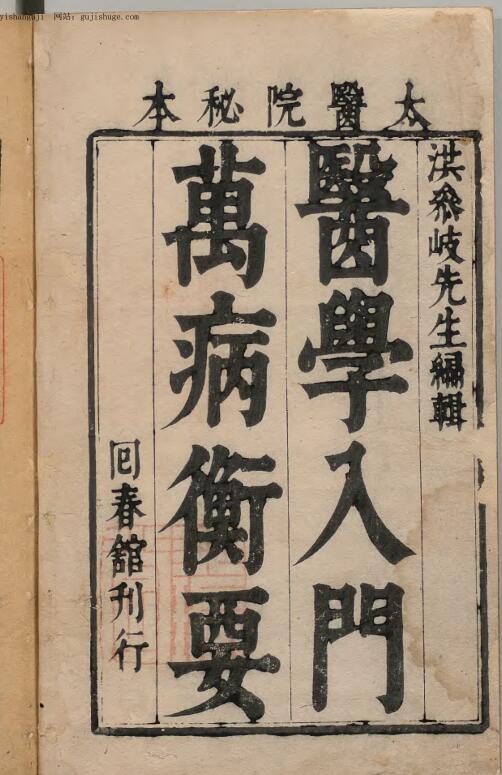 yishanguji 网站：gujishuge.com
太醫院秘本
洪飛岐先生編輯
醫學入門
萬病衡要
回春舘刊行